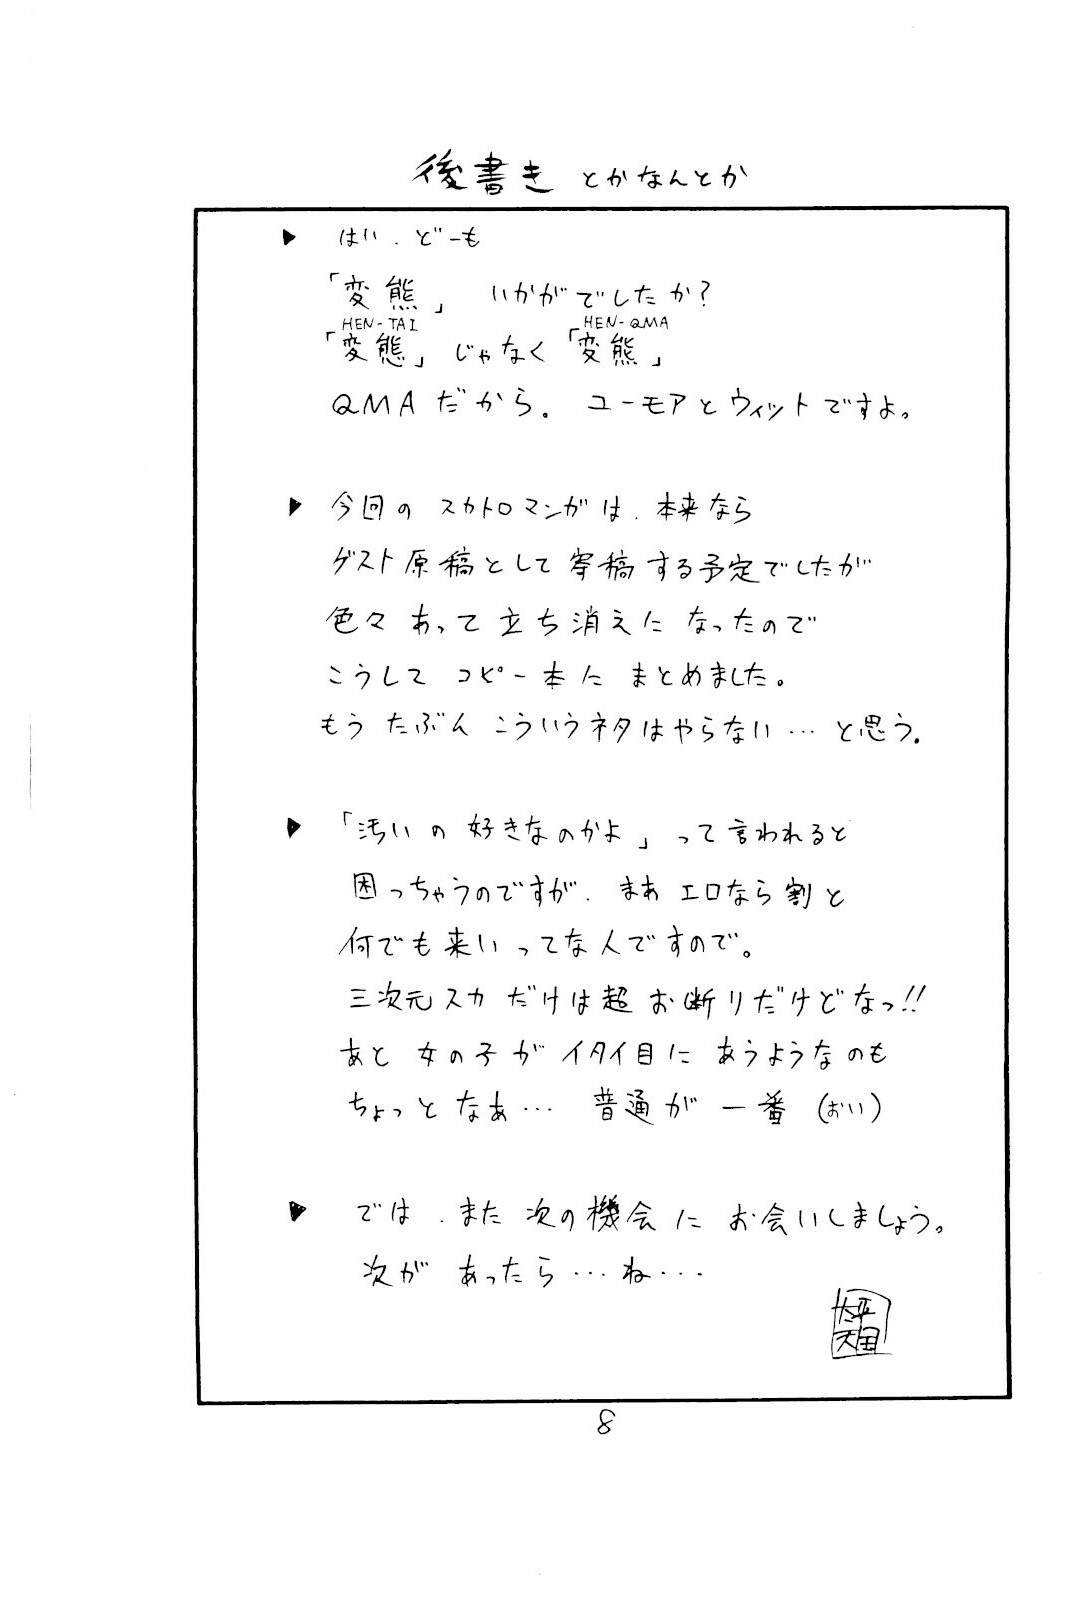 後書き とかなんとか
▶ はい、どーも
「変熊」 いかがでしたか?
HEN-TAI HEN-QMA
「変態」じゃなく「変熊」
QMAだから。 ユーモアとウィットですよ。
▶ 今回の スカトロマンガは、本来なら
ゲスト原稿として寄稿する予定でしたが
色々あって立ち消えになったので
こうして コピー本に まとめました。
もう たぶん こういうネタはやらない…と思う。
▶ 「汚いの好きなのかよ」って言われると
困っちゃうのですが、まあ エロなら割と
何でも来いってな人ですので。
三次元スカだけは超お断りだけどなっ!!
あと 女の子が イタイ目に あうようなのも
ちょっと なあ… 普通が 一番 (おい)
▶ では、また 次の機会に お会いしましょう。
次が あったら…ね…
太平
天国
8